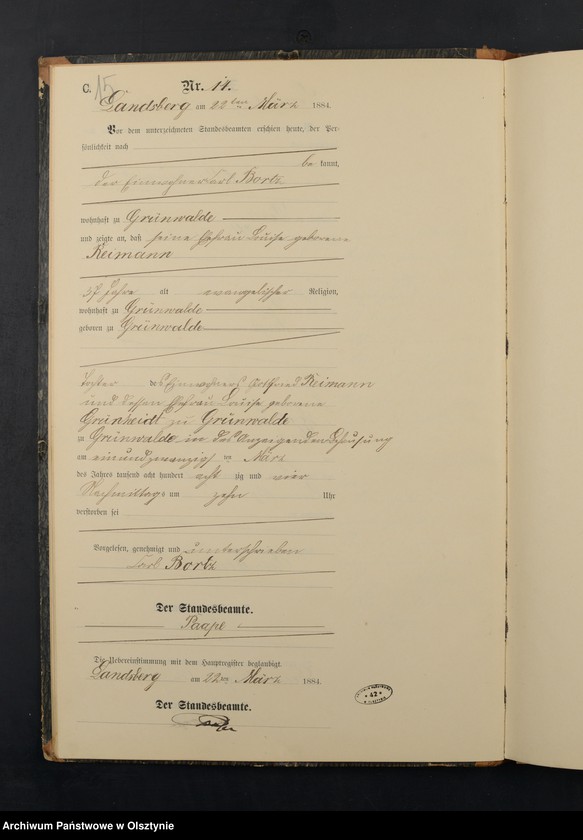 C. 15
Nr. 14.
Landsberg am 22ten März 1884.
Vor dem unterzeichneten Standesbeamten erschien heute, der Per-
sönlichkeit nach
be kannt,
der Einwohner Carl Bortz
wohnhaft zu Grünwalde
und zeigte an, daß seine Ehefrau Louise geborene
Reimann
57 Jahre alt evangelischer Religion,
wohnhaft zu Grünwalde
geboren zu Grünwalde
Tochter des Einwohners Gottfried Reimann
und dessen Ehefrau Louise geborene
zu Grünwalde
zu Grünwalde in des Anzeigenden Behausung
am einundzwanzigsten März
des Jahres tausend acht hundert acht zig und vier
Nachmittags um zehn Uhr
verstorben sei
Vorgelesen, genehmigt und unterschrieben
Carl Bortz
Der Standesbeamte.
Paape
Die Uebereinstimmung mit dem Hauptregister beglaubigt.
Landsberg am 22ten März 1884.
Der Standesbeamte.
42
Archiwum Państwowe w Olsztynie